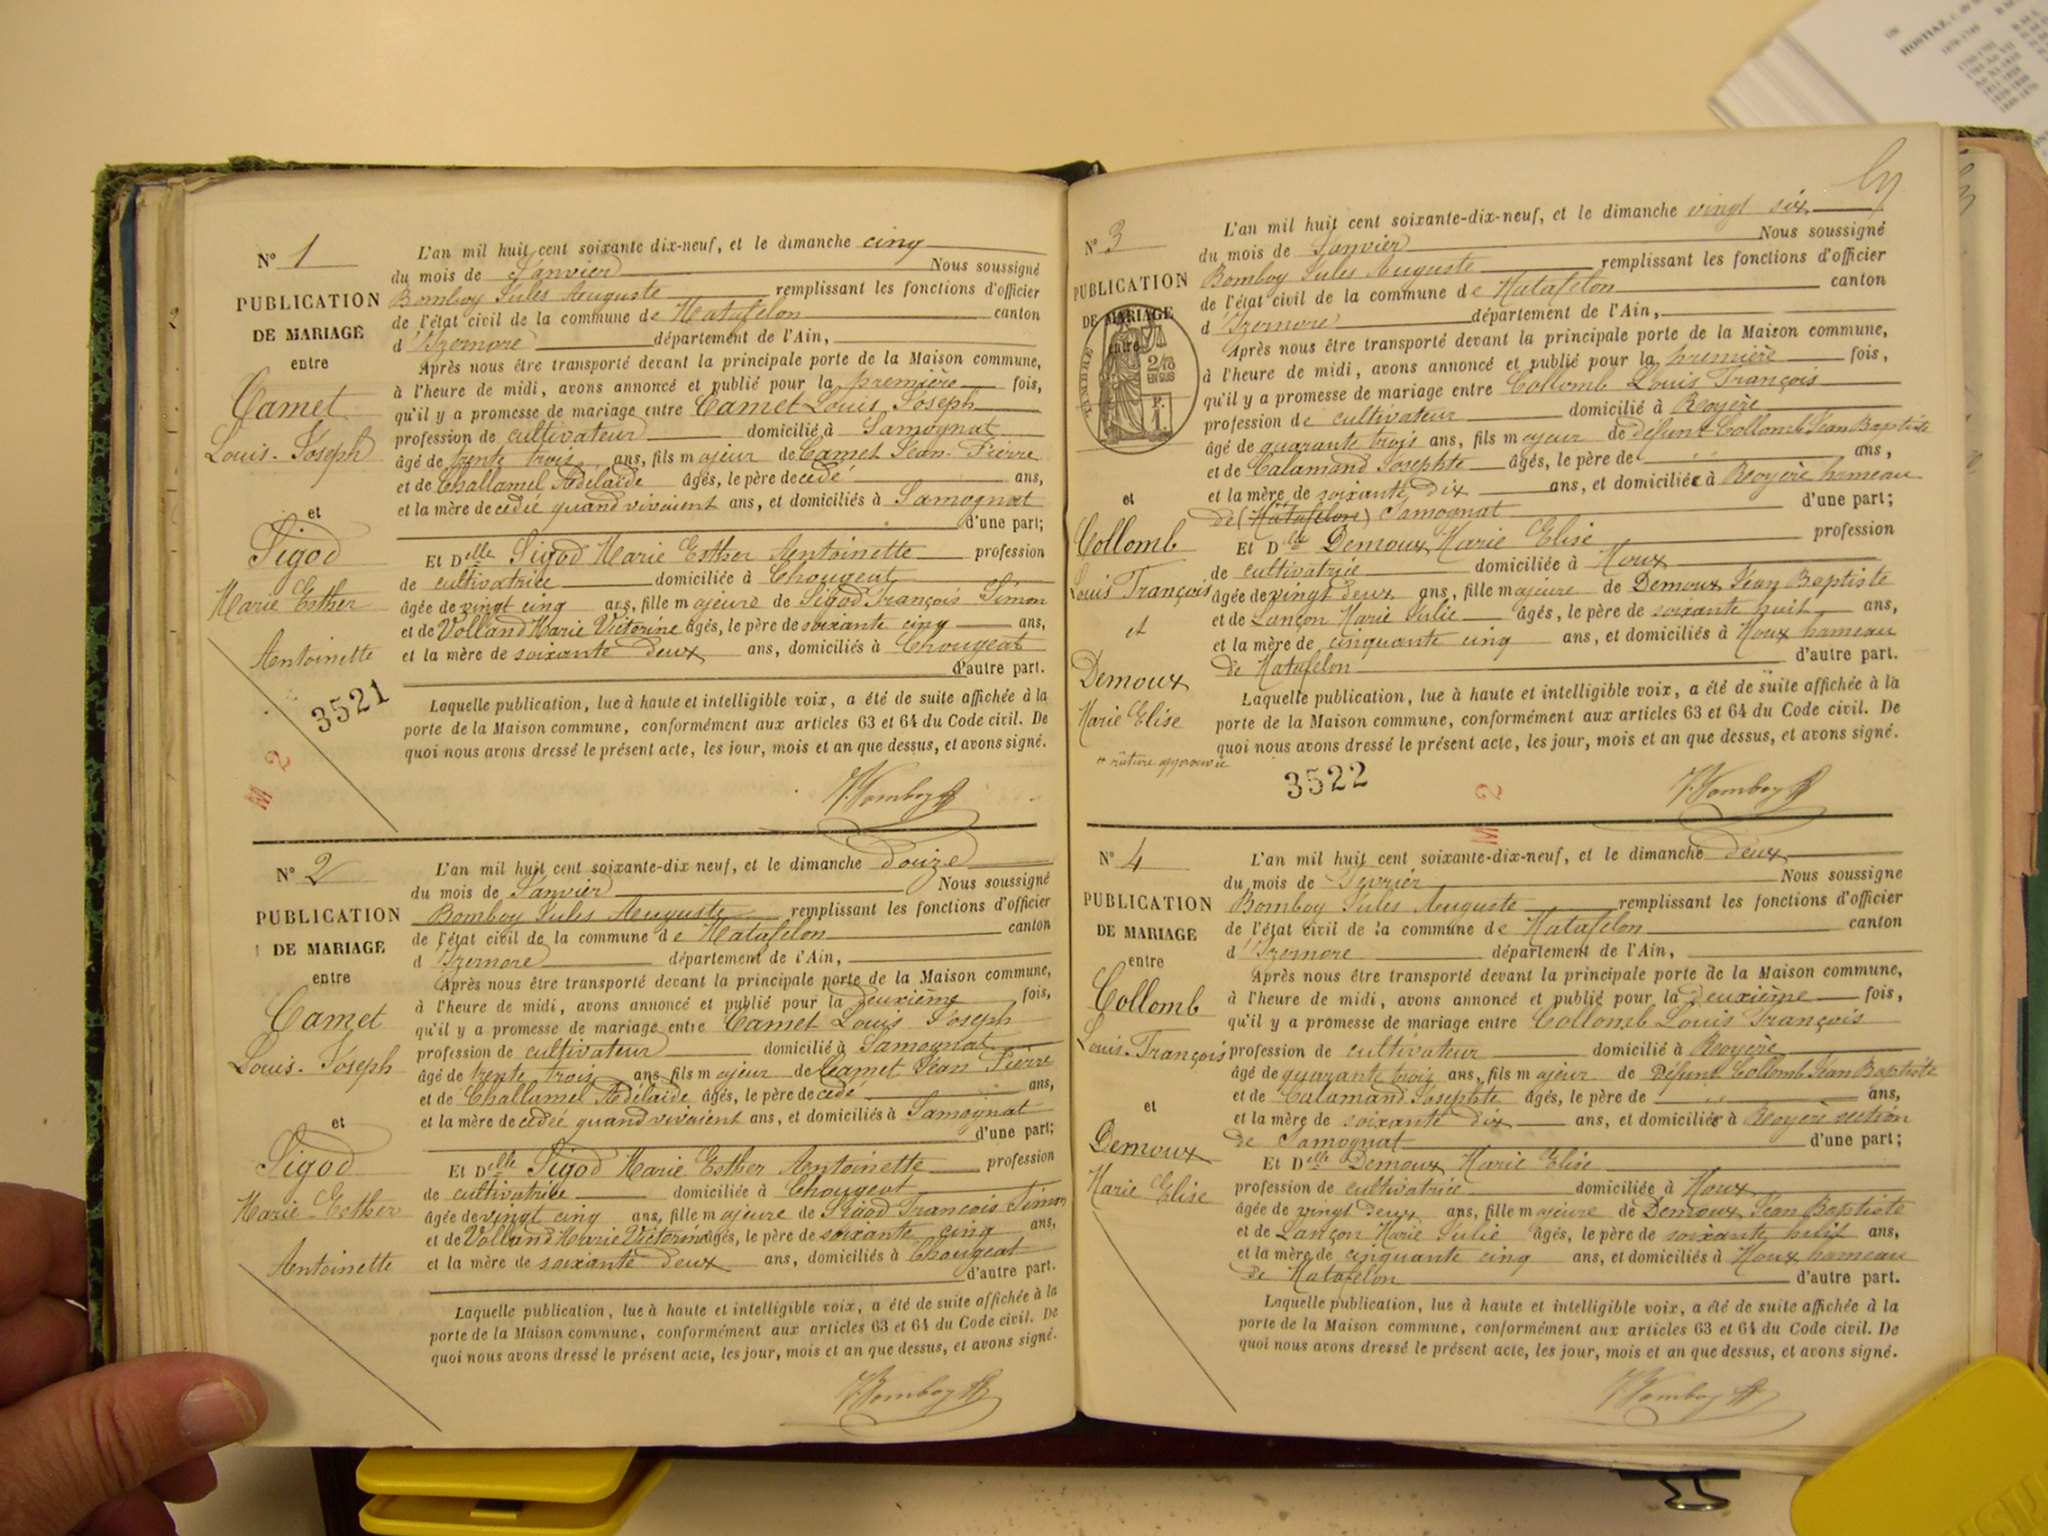 N° 1
PUBLICATION
DE MARIAGE
entre
Camet
Louis-Joseph
et
Sigod
Marie Esther
Antoinette
3521
M 2
L'an mil huit cent soixante dix-neuf, et le dimanche cinq
du mois de Janvier Nous soussigné
Bomboy Jules Auguste remplissant les fonctions d'officier
de l'état civil de la commune de Matafelon canton
d'Izernore département de l'Ain,
Après nous être transporté devant la principale porte de la Maison commune,
à l'heure de midi, avons annoncé et publié pour la première fois,
qu'il y a promesse de mariage entre Camet Louis Joseph
profession de cultivateur domicilié à Samognat
âgé de trente trois ans, fils majeur de Camet Jean-Pierre
et de Challamel Adélaïde âgés, le père decédé ans,
et la mère decédée quand vivaient ans, et domiciliés à Samognat
d'une part;
Et Delle Sigod Marie Esther Antoinette profession
de cultivatrice domiciliée à Chougeat
âgée de vingt cinq ans, fille majeure de Sigod François Simon
et de Volland Marie Victorine âgés, le père de soixante cinq ans,
et la mère de soixante deux ans, domiciliés à Chougeat
d'autre part.
Laquelle publication, lue à haute et intelligible voix, a été de suite affichée à la
porte de la Maison commune, conformément aux articles 63 et 64 du Code civil. De
quoi nous avons dressé le présent acte, les jour, mois et an que dessus, et avons signé.
J. Bomboy
N° 2
PUBLICATION
DE MARIAGE
entre
Camet
Louis-Joseph
et
Sigod
Marie-Esther
Antoinette
L'an mil huit cent soixante-dix neuf, et le dimanche douze
du mois de Janvier Nous soussigné
Bomboy Jules Auguste remplissant les fonctions d'officier
de l'état civil de la commune de Matafelon canton
d'Izernore département de l'Ain,
Après nous être transporté devant la principale porte de la Maison commune,
à l'heure de midi, avons annoncé et publié pour la deuxième fois,
qu'il y a promesse de mariage entre Camet Louis Joseph
profession de cultivateur domicilié à Samognat
âgé de trente trois ans, fils majeur de Camet Jean Pierre
et de Challamel Adélaïde âgés, le père decédé ans,
et la mère decédée quand vivaient ans, et domiciliés à Samognat
d'une part;
Et Delle Sigod Marie Esther Antoinette profession
de cultivatrice domiciliée à Chougeat
âgée de vingt cinq ans, fille majeure de Sigod François Simon
et de Volland Marie Victorine âgés, le père de soixante cinq ans,
et la mère de soixante deux ans, domiciliés à Chougeat
d'autre part.
Laquelle publication, lue à haute et intelligible voix, a été de suite affichée à la
porte de la Maison commune, conformément aux articles 63 et 64 du Code civil. De
quoi nous avons dressé le présent acte, les jour, mois et an que dessus, et avons signé.
J. Bomboy
N° 3
PUBLICATION
DE MARIAGE
entre
TIMBRE
et
Collomb
Louis François
et
Demoux
Marie Elise
rature approuvée
3522
M 2
L'an mil huit cent soixante-dix-neuf, et le dimanche vingt six
du mois de Janvier Nous soussigné
Bomboy Jules Auguste remplissant les fonctions d'officier
de l'état civil de la commune de Matafelon canton
d'Izernore département de l'Ain,
Après nous être transporté devant la principale porte de la Maison commune,
à l'heure de midi, avons annoncé et publié pour la première fois,
qu'il y a promesse de mariage entre Collomb Louis François
profession de cultivateur domicilié à Royère
âgé de quarante trois ans, fils majeur de défunt Collomb Jean Baptiste
et de Calamand Josephte âgés, le père de ans,
et la mère de soixante dix ans, et domiciliée à Royère hameau
de (Matafelon) Samognat d'une part;
Et Dlle Demoux Marie Elise profession
de cultivatrice domiciliée à Moux
âgée de vingt deux ans, fille majeure de Demoux Jean Baptiste
et de Lançon Marie Julie âgés, le père de soixante huit ans,
et la mère de cinquante cinq ans, et domiciliés à Moux hameau
de Matafelon d'autre part.
Laquelle publication, lue à haute et intelligible voix, a été de suite affichée à la
porte de la Maison commune, conformément aux articles 63 et 64 du Code civil. De
quoi nous avons dressé le présent acte, les jour, mois et an que dessus, et avons signé.
J. Bomboy
N° 4
PUBLICATION
DE MARIAGE
entre
Collomb
Louis-François
et
Demoux
Marie Elise
L'an mil huit cent soixante-dix-neuf, et le dimanche deux
du mois de Fevrier Nous soussigné
Bomboy Jules Auguste remplissant les fonctions d'officier
de l'état civil de la commune de Matafelon canton
d'Izernore département de l'Ain,
Après nous être transporté devant la principale porte de la Maison commune,
à l'heure de midi, avons annoncé et publié pour la deuxième fois,
qu'il y a promesse de mariage entre Collomb Louis François
profession de cultivateur domicilié à Royère
âgé de quarante trois ans, fils majeur de Défunt Collomb Jean Baptiste
et de Calamand Josephte âgés, le père de ans,
et la mère de soixante dix ans, et domiciliée à Royère section
de Samognat d'une part;
Et Delle Demoux Marie Elise
profession de cultivatrice domiciliée à Moux
âgée de vingt deux ans, fille majeure de Demoux Jean Baptiste
et de Lançon Marie Julie âgés, le père de soixante huit ans,
et la mère de cinquante cinq ans, et domiciliés à Moux hameau
de Matafelon d'autre part.
Laquelle publication, lue à haute et intelligible voix, a été de suite affichée à la
porte de la Maison commune, conformément aux articles 63 et 64 du Code civil. De
quoi nous avons dressé le présent acte, les jour, mois et an que dessus, et avons signé.
J. Bomboy